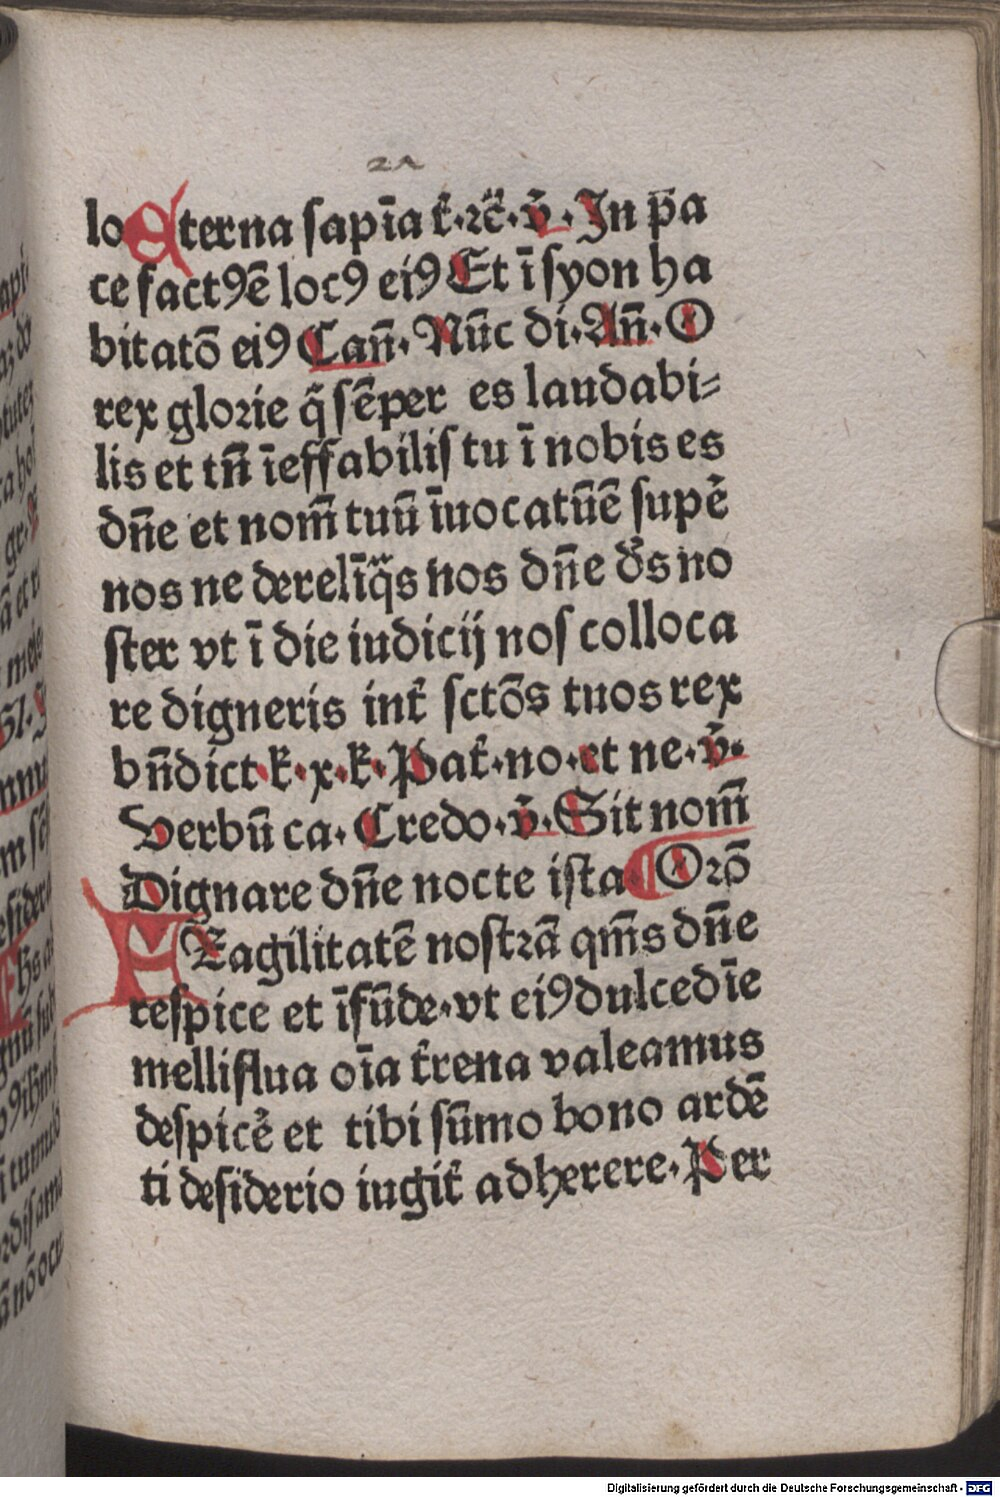 21
lo Eterna sapīa t᷑.⁊c̄.v̄. In p̄a
ce fact⁹ē loc⁹ ei⁹ Et ī syon ha
bitatō ei⁹ Cañ. Nūc di. Añ. O
rex glorie q̄ sēper es laudabi⸗
lis et tñ īeffabilis tu ī nobis es
dñe et nom̄ tuū īuocatūē supẽ
nos ne derelīq̄s nos dñe ds̄ no
ster vt ī die iudicij nos colloca
re digneris int᷑ sctōs tuos rex
bñdict k᷑.x.k᷑. Pat᷑.no.et ne.v̄.
Verbū ca. Credo.v̄. Sit nom̄
Dignare dñe nocte ista. Orō
FRagilitatē nostrā qm̄s dñe
respice et īfūde.vt ei⁹ dulcedīe
melliflua oīa t᷑rena valeamus
despicẽ et tibi sūmo bono ardē
ti desiderio iugit᷑ adherere. Per
Digitalisierung gefördert durch die Deutsche Forschungsgemeinschaft - DFG